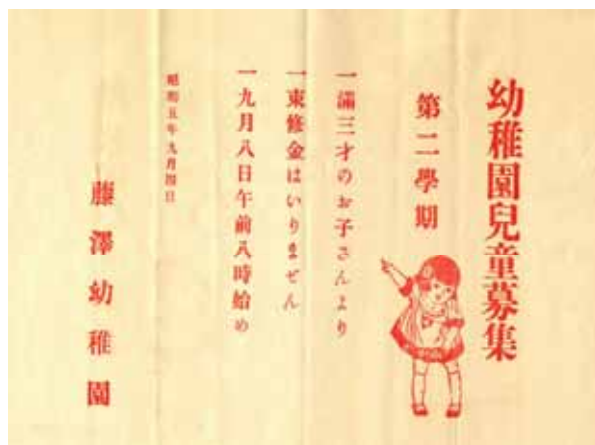 幼稚園兒童募集
第二學期
一滿三才のお子さんより
一束修金はいりません
一九月八日午前八時始め
昭和五年九月四日
藤澤幼稚園